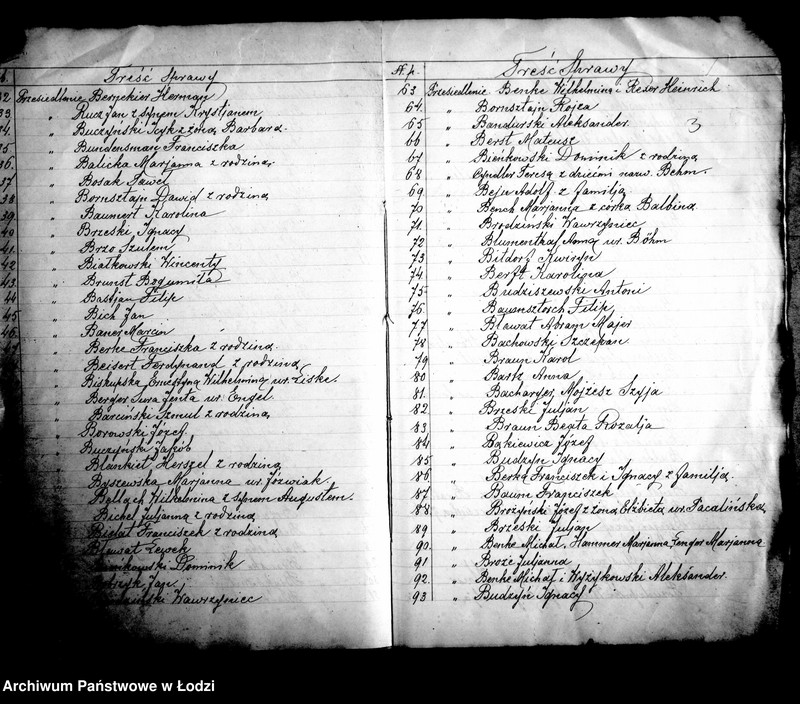 Treść Sprawy
32 Przesiedlenie Bergekier Herman
33 " Kuczjan z synem Krystjanem
34. " Buczyński Icyk z żoną Barbarą.
35 " Bundensman Franciszka
36. " Balicka Marjanna z rodziną.
37 " Bosak Paweł
38 " Bornsztajn Dawid z rodziną
39 " Baumert Karolina
40 " Brzeski Ignacy
41. " Brzo Szulem
42 " Białkowski Wincenty
43. " Brunst Bogumiła
44 " Bastjan Filip
45 " Bich Jan
46. " Baner Marcin
" Berke Franciszka z rodziną.
" Beisert Ferdynand z rodziną
" Biskupska Ernestyna Wilhelmina ur. Liske.
" Berger Sura Jenta ur. Engel
" Barciński Szmul z rodziną
" Borowski Józef
" Buczyński Jakób
" Blankiet Herszel z rodziną
" Byszewska Marjanna ur. Józwiak
" Ballach Wilhelmina z synem Augustem.
" Bichel Juljanna z rodziną
Białat Franciszek z rodziną
Bławat Lewek
Dominik
Jan
Wawrzyniec
N. p. Treść Sprawy
63 Przesiedlenie Benke Wilhelmina i Keser Heinrich
64. " Bornsztajn Rojza
65 " Bandurski Aleksander. 3
66 " Berst Mateusz
67 " Bieńkowski Dominik z rodziną
68 " Cyndler Teresa z dziećmi nazw. Behm.
69 " Beju Adolf z familją
70 " Bench Marjanna z córką Balbiną
71. " Brodziński Wawrzyniec
72 " Blumenthal Anna ur. Böhm
73 " Bitdorf Kwiryn
74 " Berft Karolina
75 " Budziszewski Antoni
76. " Bauensztorch Filip
77 " Bławat Abram Majer
78 " Bachowski Szczepan
79 " Braun Karol
80 " Bartz Anna
81. " Bacharjer Mojżesz Szyja
82 " Brzeski Juljan
83 " Braun Beata Rozalja
84 " Bąkiewicz Józef
85 " Budzyń Ignacy
86 " Berka Franciszek i Ignacy z familją.
87 " Baum Franciszek
88 " Brożyński Józef z żoną Elżbietą ur. Pacalińską
89 " Brzeski Juljan
90. " Benke Michał, Hammer Marjanna, Fenger Marjanna
91 " Broże Juljanna
92. " Benke Michał i Wyżykowski Aleksander.
93 " Budzyń Ignacy
Archiwum Państwowe w Łodzi